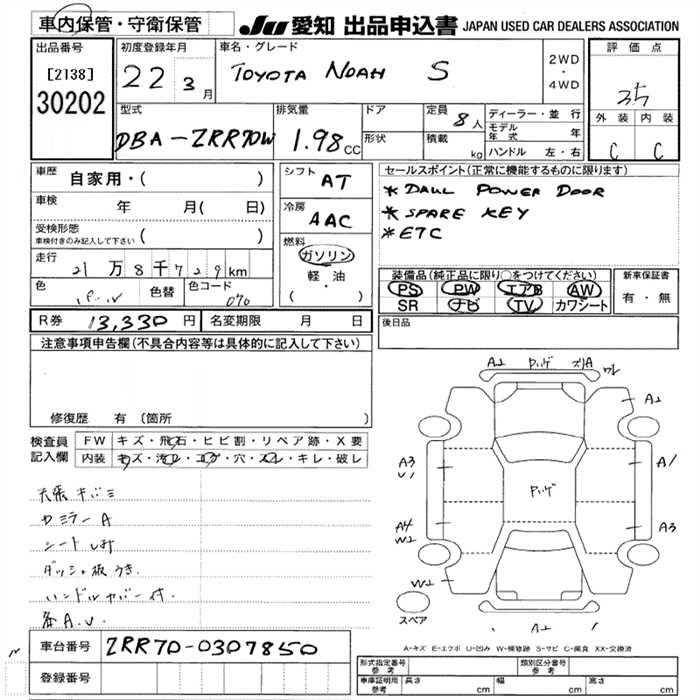 車内保管・守衛保管
JU 愛知 出品申込書 JAPAN USED CAR DEALERS ASSOCIATION
出品番号
[2138]
30202
初度登録年月
22 3月
車名・グレード
TOYOTA NOAH S
2WD
・
4WD
評価点
3.5
外装 内装
C C
型式
DBA-ZRR70W
排気量
1.98CC
ドア
形状
定員 8人
積載 kg
ディーラー・並行
モデル年式 年
ハンドル 左・右
車歴
自家用・( )
車検 年 月( 日)
受検形態
車検付きのみ記入して下さい ( )
走行 21万8千729km
色
色替
色コード 070
シフト AT
冷房 AAC
燃料
ガソリン
軽・油
( )
セールスポイント(正常に機能するものに限ります)
* DAUL POWER DOOR
* SPARE KEY
* ETC
装備品(純正品に限り○をつけてください)
PS PW エアB AW
SR ナビ TV カワシート
新車保証書
有・無
R券 13,330円
名変期限 月 日
後日品
注意事項申告欄(不具合内容等は具体的に記入して下さい)
修復歴 有 (箇所 )
検査員
記入欄
FW キズ・飛石・ヒビ割・リペア跡・X要
内装 キズ・汚レ・コゲ・穴・スレ・キレ・破レ
天張キバミ
カミラーA
ダッシュ板うき.
ハンドルカバー付.
各A.U.
車台番号 ZRR70-0307850
登録番号
A2 ワレ
A2
A3
U1
A1
A4
W2
A3
W2
A2
スペア
A-キズ E-エクボ U-凹み W-補修跡 S-サビ C-腐食 XX-交換済
形式指定番号
参考
類別区分番号
参考
車庫証明用
参考
長さ cm 幅 cm 高さ cm